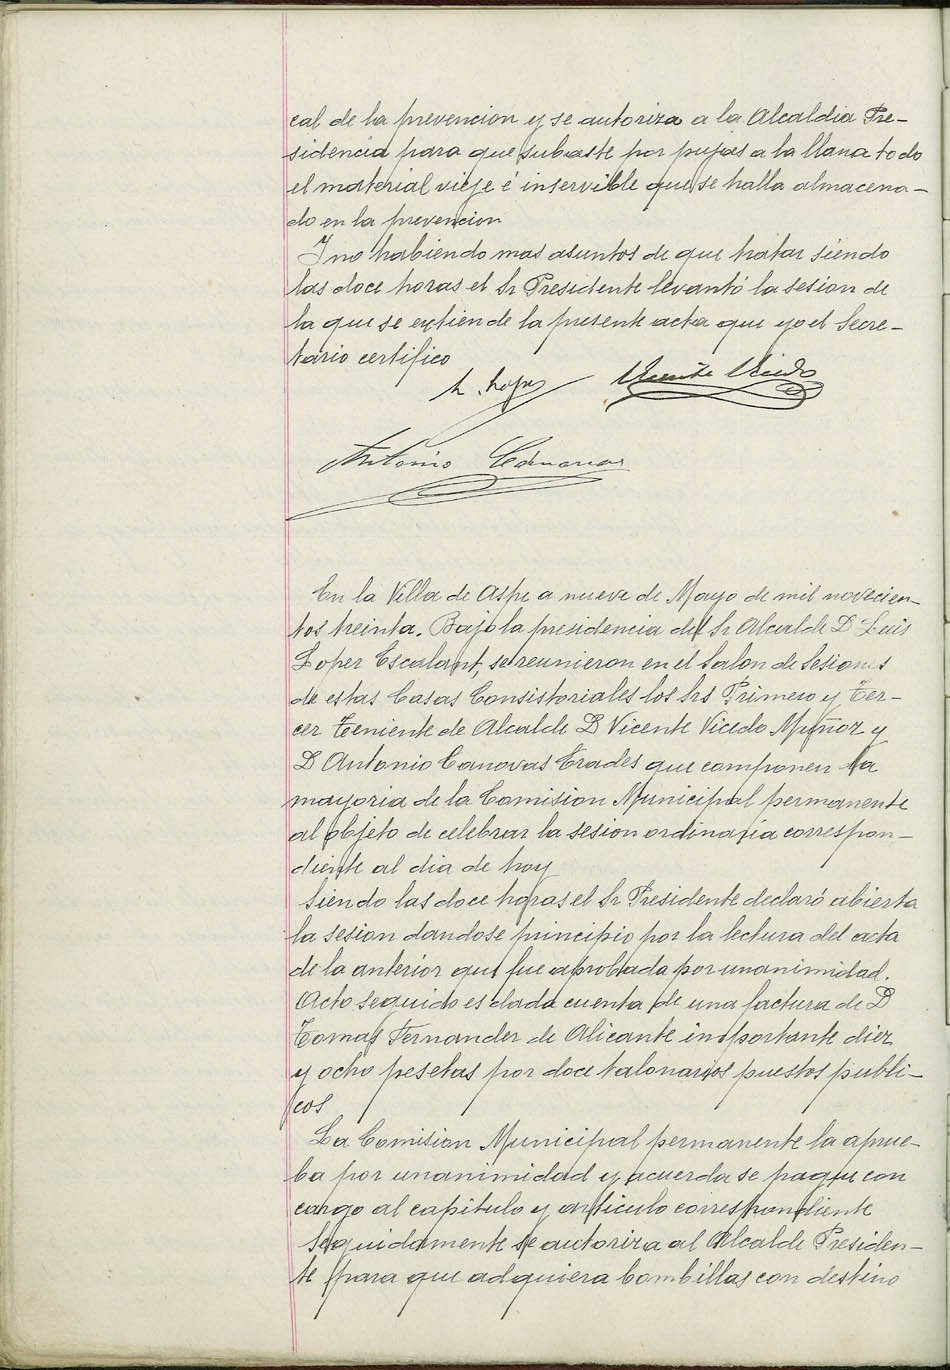 cal de la prevencion y se autoriza a la Alcaldia Pre-
sidencia para que subaste por pujas a la llana todo
el material vieje é inservible que se halla almacena-
do en la prevencion
Y no habiendo mas asuntos de que tratar siendo
las doce horas el Sr Presidente levantó la sesion de
la que se extiende la presente acta que yo el Secre-
tario certifico
L. Lopez Vicente Vicedo
Antonio Canovas
En la Villa de Aspe a nueve de Mayo de mil novecien-
tos treinta. Bajo la presidencia del Sr Alcalde D Luis
Lopez Escalant, se reunieron en el Salon de Sesiones
de estas Casas Consistoriales los Srs Primero y Ter-
cer Teniente de Alcalde D Vicente Vicedo Muñoz y
D Antonio Canovas Erades que componen la
mayoria de la Comision Municipal permanente
al objeto de celebrar la sesion ordinaria correspon-
diente al dia de hoy
Siendo las doce horas el Sr Presidente declaró abierta
la sesion dandose principio por la lectura del acta
de la anterior que fue aprobada por unanimidad.
Acto seguido es dada cuenta de una factura de D
Tomas Fernandez de Alicante importante diez
y ocho pesetas por doce talonarios puestos publi-
cos
La Comision Municipal permanente la aprue-
ba por unanimidad y acuerda se pague con
cargo al capitulo y articulo correspondiente
Seguidamente se autoriza al Alcalde Presiden-
te para que adquiera bombillas con destino